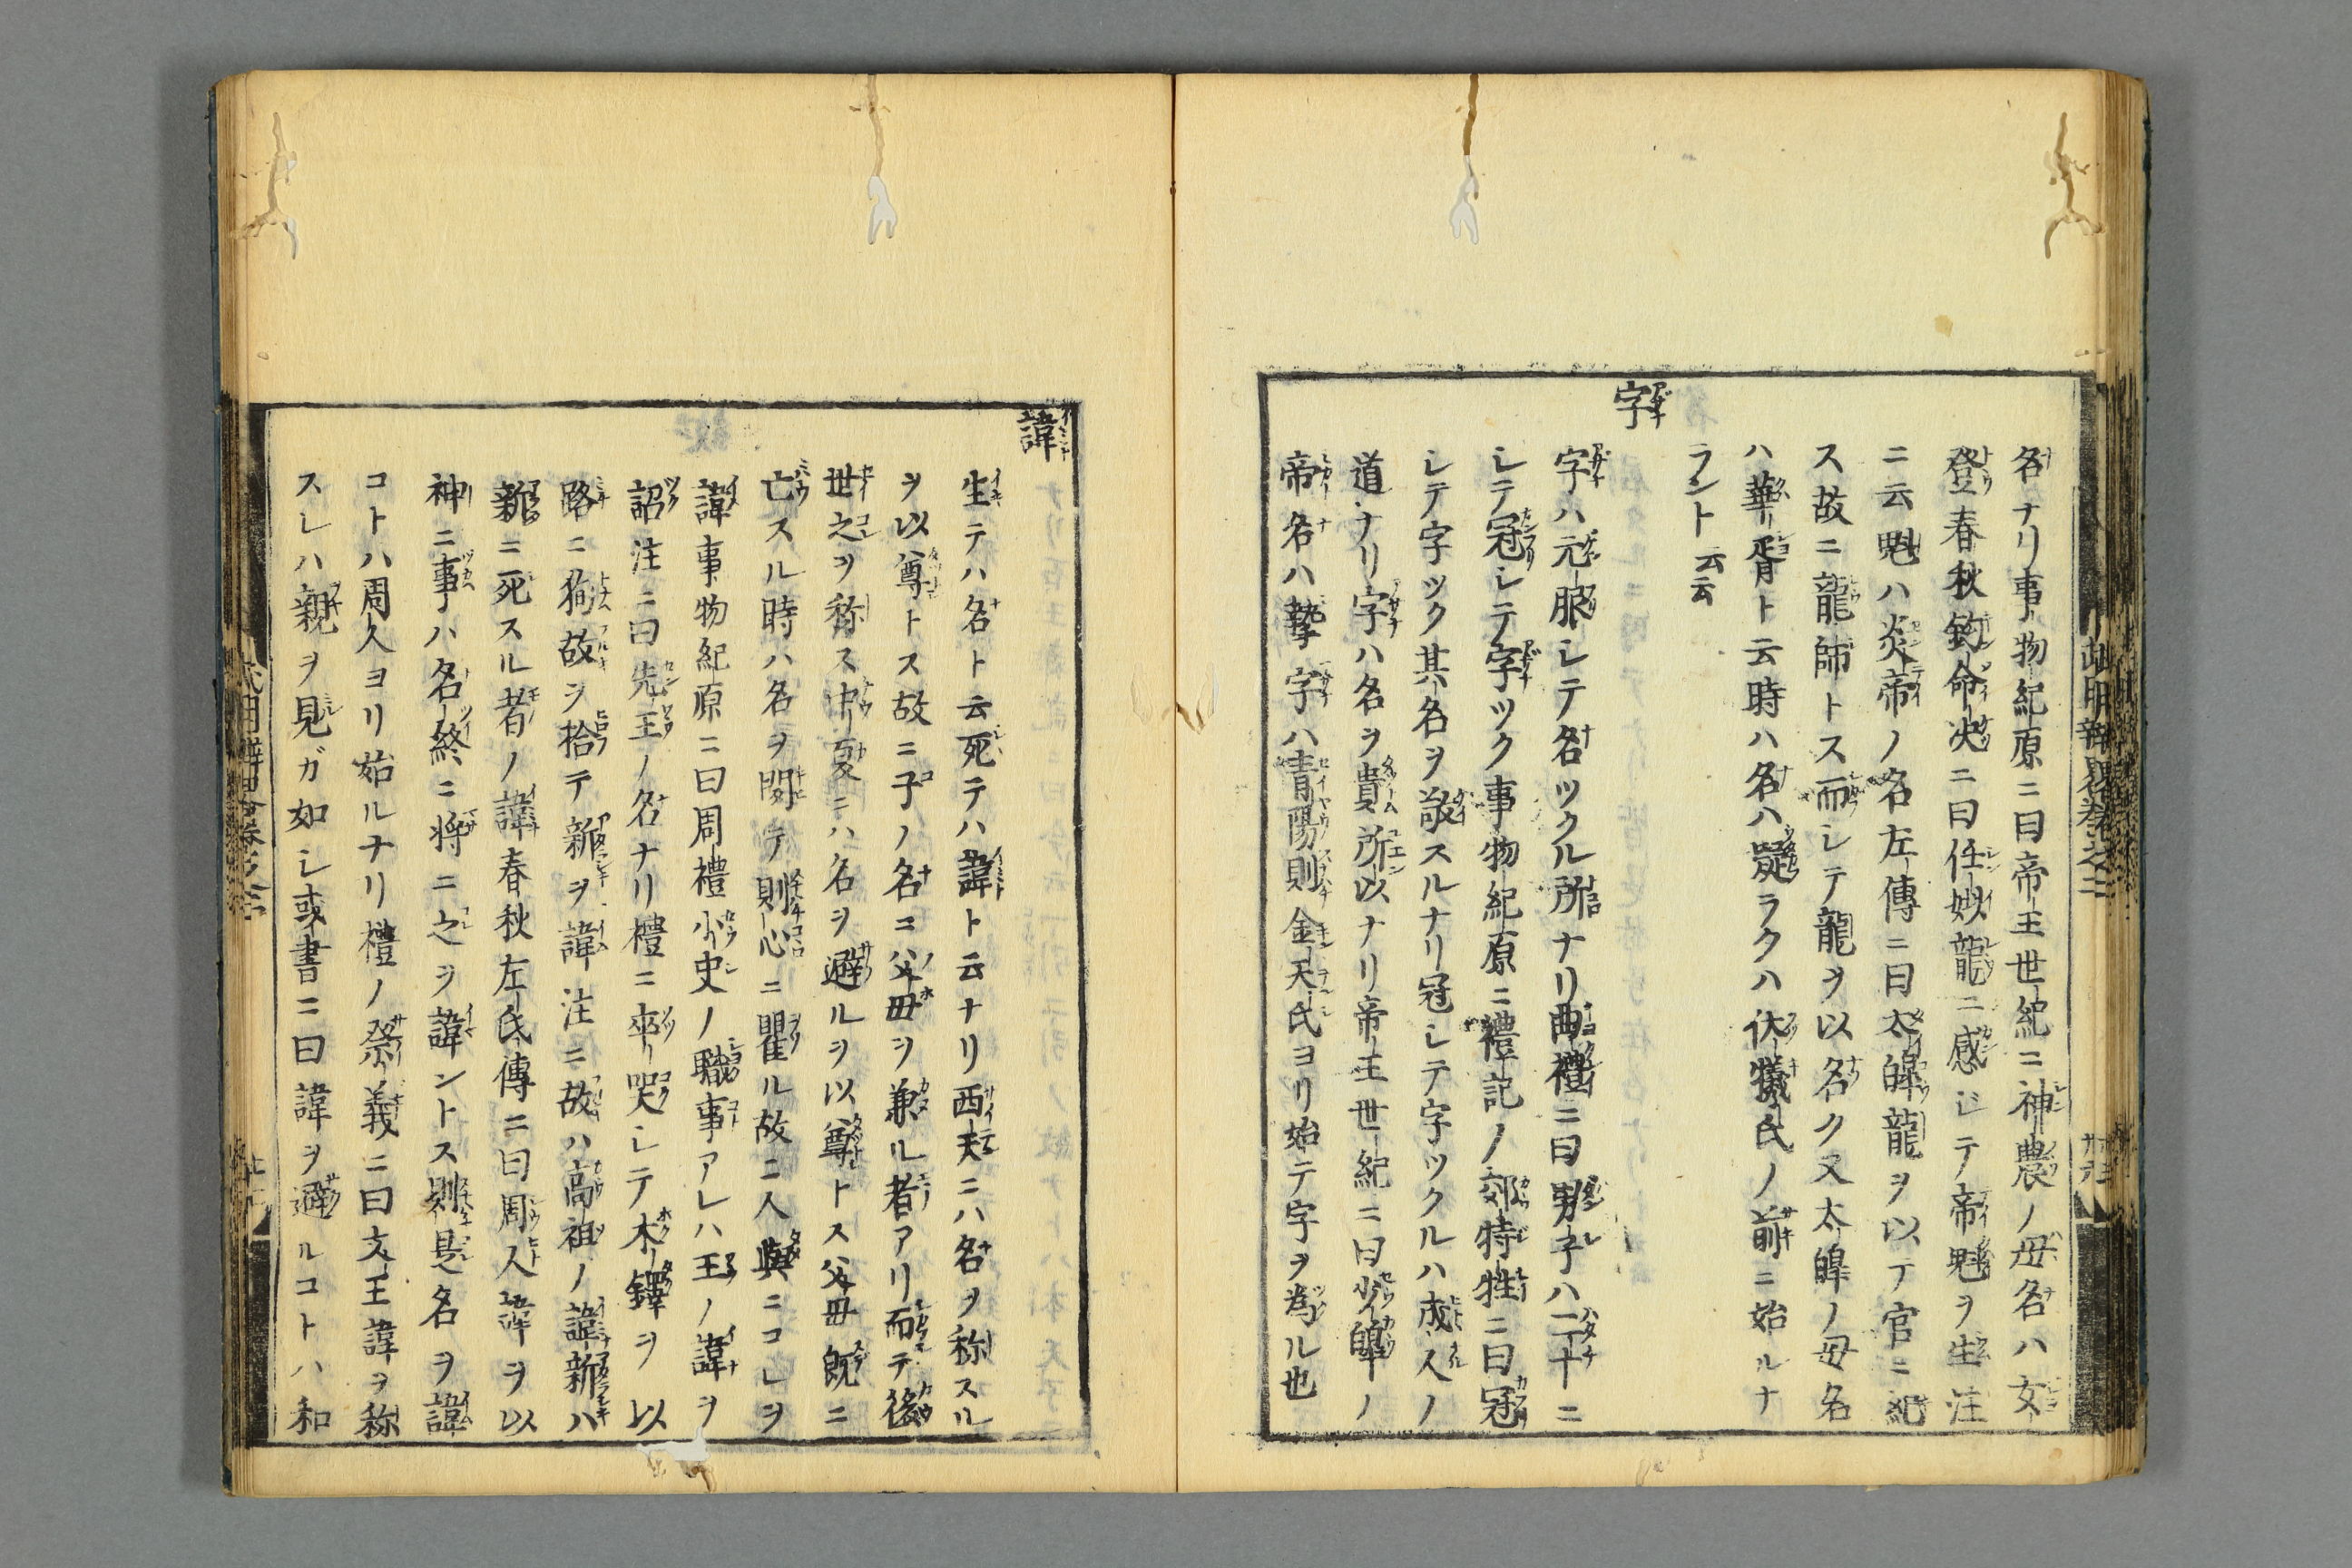 名ナリ事物紀原ニ曰帝王世紀ニ神農ノ母名ハ女
登春秋鈎命决ニ曰任姒龍ニ感ジテ帝魁ヲ生注
ニ云魁ハ炎帝ノ名左傳ニ曰太皥龍ヲ以テ官ニ紀
ス故ニ龍師トス而シテ龍ヲ以名ク又太皥ノ母名
ハ華胥ト云時ハ名ハ疑ラクハ伏犧氏ノ前ニ始ルナ
ラント云云
字
字ハ元服シテ名ツクル所ナリ曲禮ニ曰男子ハ二十ニ
シテ冠シテ字ツク事物紀原ニ禮記ノ郊特牲ニ曰冠
シテ字ツク其名ヲ敬スルナリ冠シテ字ツクルハ成人ノ
道ナリ字ハ名ヲ貴所以ナリ帝王世紀ニ曰少皥ノ
帝名ハ摯字ハ青陽則金天氏ヨリ始テ字ヲ爲ル也
諱
生テハ名ト云死テハ諱ト云ナリ西天ニハ名ヲ称スル
ヲ以尊トス故ニ子ノ名ニ父母ヲ兼ル者アリ而テ後
世之ヲ称ス中夏ニハ名ヲ避ルヲ以尊トス父母既ニ
亡スル時ハ名ヲ聞テ則心ニ瞿ル故ニ人與ニコレヲ
諱事物紀原ニ曰周禮小史ノ職事アレハ王ノ諱ヲ
詔注ニ曰先王ノ名ナリ禮ニ卒哭シテ木鐸ヲ以
路ニ狥故ヲ拾テ新ヲ諱注ニ故ハ高祖ノ諱新ハ
新ニ死スル者ノ諱春秋左氏傳ニ曰周人諱ヲ以
神ニ事ハ名終ニ将ニ之ヲ諱ントス則是名ヲ諱
コトハ周人ヨリ始ルナリ禮ノ祭義ニ曰文王諱ヲ称
スレハ親ヲ見ガ如シ或書ニ曰諱ヲ避ルコトハ和